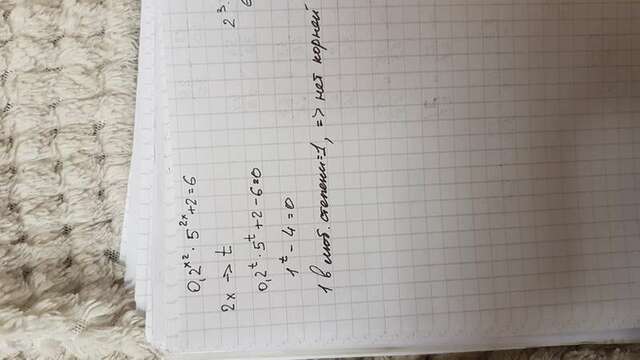 0,2^x2 · 5^2x + 2 = 6
2x → t
2^3 ·
0,2^t · 5^t + 2 - 6 = 0
6
1^t - 4 = 0
1 в люб. степени = 1, => нет корней